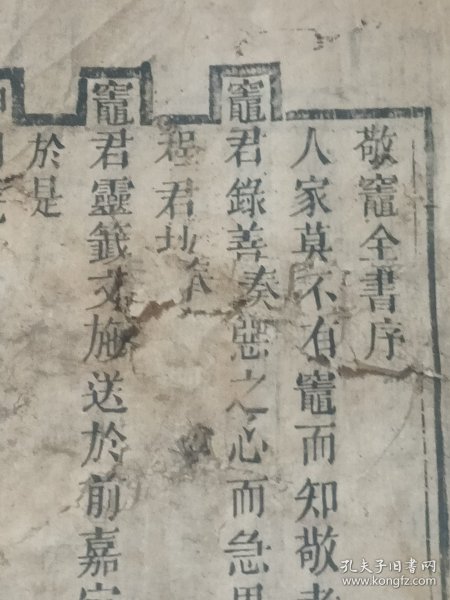 敬竈全書序
人家莫不有竈而知敬者
竈君錄善奏惡之心而急思
程君
竈君靈籤文施送於前嘉定
於是
孔夫子旧书网
www.kongfz.com